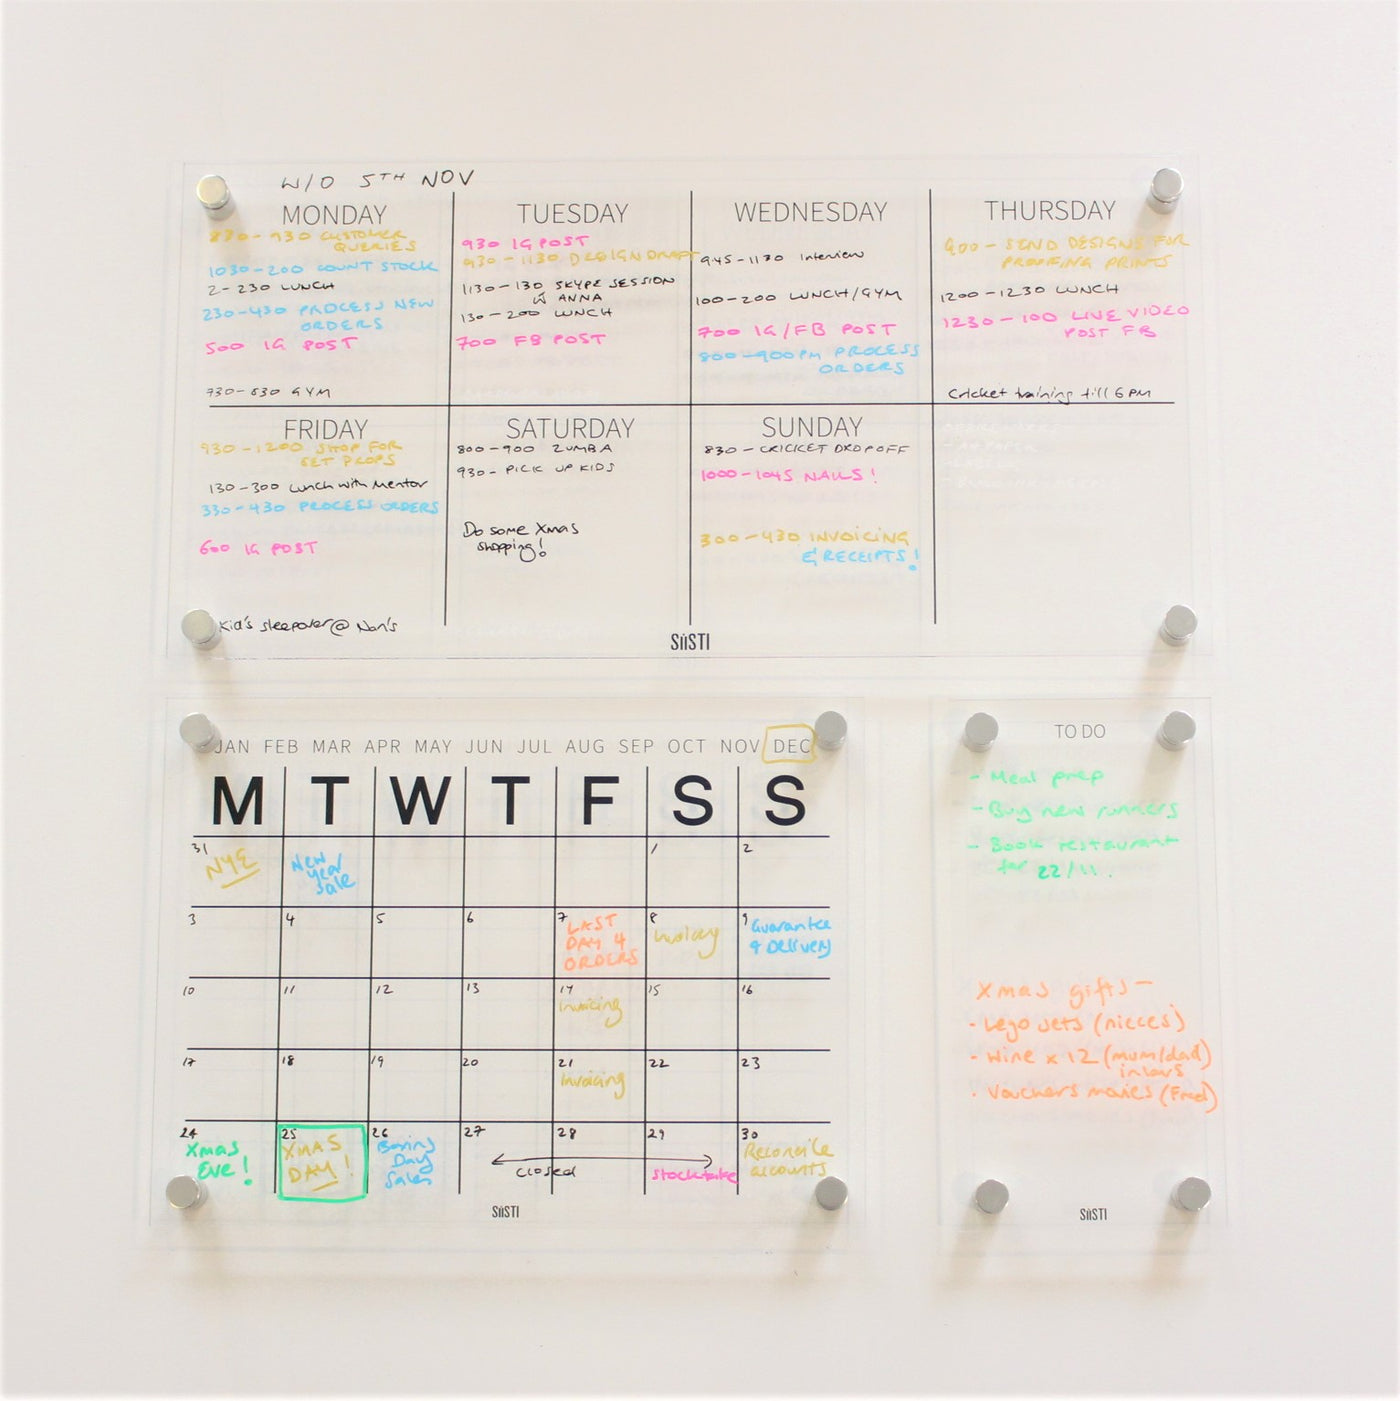 W/O 5TH NOV
MONDAY
830-930 CUSTOMER
QUERIES
1030-200 COUNT STOCK
2-230 LUNCH
230-430 PROCESS NEW
ORDERS
500 IG POST
730-830 GYM
TUESDAY
930 IG POST
930-1130 DESIGN DRAFT
1130-130 SKYPE SESSION
W ANNA
130-200 LUNCH
700 FB POST
WEDNESDAY
945-1130 Interview
100-200 LUNCH/GYM
700 IG/FB POST
800-900PM PROCESS
ORDERS
THURSDAY
900- SEND DESIGNS FOR
PROOFING PRINTS
1200-1230 LUNCH
1230-100 LIVE VIDEO
POST FB
Cricket training till 6PM
FRIDAY
930-1200 SHOP FOR
SET PROPS
130-300 Lunch with Mentor
330-430 PROCESS ORDERS
600 IG POST
Kid's sleepover @ Nan's
SATURDAY
800-900 ZUMBA
930- PICK UP KIDS
Do some Xmas
shopping!
SUNDAY
830- CRICKET DROPOFF
1000-1045 NAILS!
300-430 INVOICING
& RECEIPTS!
SiiSTI
JAN FEB MAR APR MAY JUN JUL AUG SEP OCT NOV DEC
M T W T F S S
31 1 2
NYE
New
Year
Sale
3 4 5 6 7 8 9
LAST
DAY 4
ORDERS
Invoicing
Guarantee
& Delivery
10 11 12 13 14 15 16
Invoicing
17 18 19 20 21 22 23
Invoicing
24 25 26 27 28 29 30
Xmas
Eve!
XMAS
DAY!
Boxing
Day
Sales
closed
Stocktake
Reconcile
accounts
SiiSTI
TO DO
- Meal prep
- Buy new runners
- Book restaurant
for 22/11.
Xmas gifts-
- Lego sets (nieces)
- Wine x 12 (mum/dad)
inlaws
- Vouchers movies (Fred)
SiiSTI